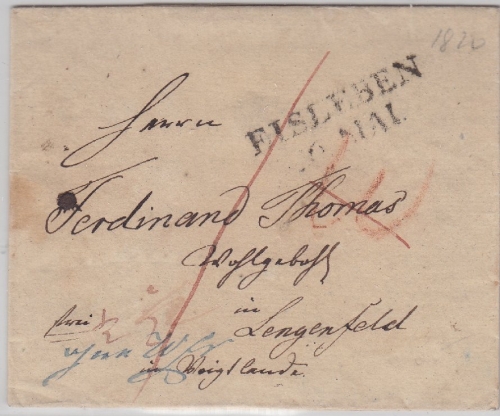 1820
EISLEBEN
MAI.
Herrn
Ferdinand Thomas
Wohlgebohr
in
frei
Lengenfeld
im Voigtlande.